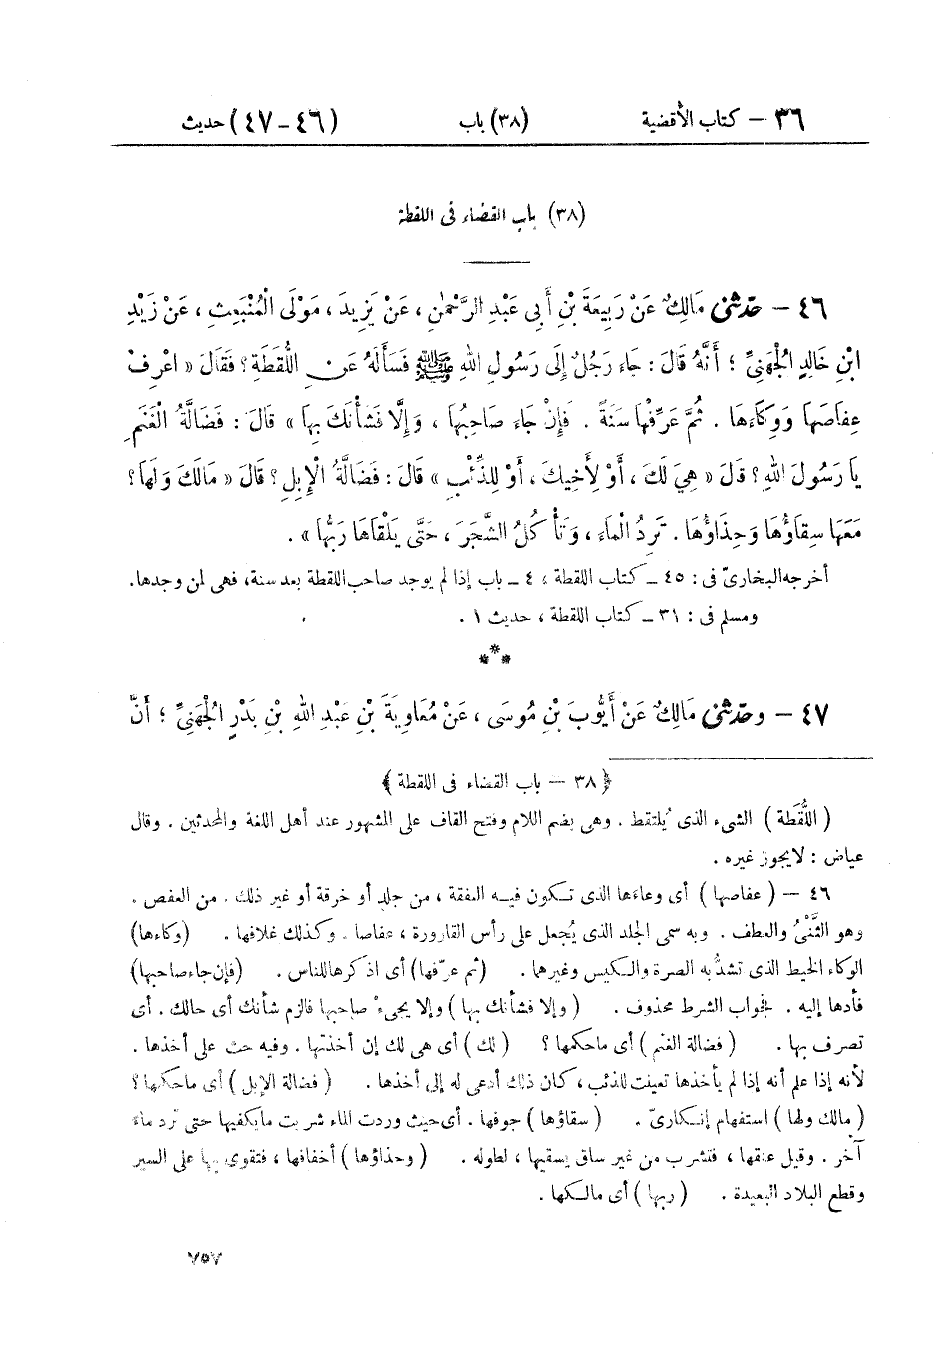 ٣٦ – كتاب الأقضية (٣٨) باب (٤٦ – ٤٧) حديث
(٣٨) باب القضاء فى اللقطة
٤٦ – حدّثنى مَالِكٌ عَنْ رَبِيعَةَ بْنِ أَبِى عَبْدِ الرَّحْمٰنِ ، عَنْ يَزِيدَ ، مَوْلَى الْمُنْبَعِثِ ، عَنْ زَيْدِ
ابْنِ خَالِدٍ الْجُهَنِىِّ ؛ أَنَّهُ قَالَ : جَاءَ رَجُلٌ إِلَى رَسُولِ اللهِ ﷺ فَسَأَلَهُ عَنِ اللُّقَطَةِ ؟ فَقَالَ « اعْرِفْ
عِفَاصَهَا وَوِكَاءَهَا . ثُمَّ عَرِّفْهَا سَنَةً . فَإِنْ جَاءَ صَاحِبُهَا ، وَإِلَّا فَشَأْنَكَ بِهَا » قَالَ : فَضَالَّةُ الْغَنَمِ
يَا رَسُولَ اللهِ ؟ قَالَ « هِىَ لَكَ ، أَوْ لِأَخِيكَ ، أَوْ لِلذِّئْبِ » قَالَ : فَضَالَّةُ الْإِبِلِ ؟ قَالَ « مَالَكَ وَلَهَا ؟
مَعَهَا سِقَاؤُهَا وَحِذَاؤُهَا . تَرِدُ الْمَاءَ ، وَتَأْكُلُ الشَّجَرَ ، حَتَّى يَلْقَاهَا رَبُّهَا » .
أخرجه البخارىّ فى : ٤٥ – كتاب اللقطة ، ٤ – باب إذا لم يوجد صاحب اللقطة بعد سنة، فهى لمن وجدها.
ومسلم فى : ٣١ – كتاب اللقطة ، حديث ١ .
***
٤٧ – وحدّثنى مَالِكٌ عَنْ أَيُّوبَ بْنِ مُوسَى ، عَنْ مُعَاوِيَةَ بْنِ عَبْدِ اللهِ بْنِ بَدْرٍ الْجُهَنِىِّ ؛ أَنَّ
﴿ ٣٨ – باب القضاء فى اللقطة ﴾
( اللُّقَطَة ) الشىء الذى يُلتقط . وهى بضم اللام وفتح القاف على المشهور عند أهل اللغة والمحدثين . وقال
عياض : لايجوز غيره .
٤٦ – ( عفاصها ) أى وعاءها الذى تكون فيه النفقة ، من جلد أو خرقة أو غير ذلك . من العفص .
وهو الثَّنْىُ والعطف . وبه سمى الجلد الذى يُجعل على رأس القارورة ، عفاصا . وكذلك غلافها . (وكاءها)
الوكاء الخيط الذى تشدُّ به الصرة والكيس وغيرها . (ثم عرّفها) أى اذكرها للناس . (فإن جاء صاحبها)
فأدها إليه . فجواب الشرط محذوف . (وإلا فشأنك بها) وإلا يجىءْ صاحبها فالزم شأنك أى حالك . أى
تصرف بها . (فضالة الغنم) أى ماحكمها ؟ (لك) أى هى لك إن أخذتها . وفيه حث على أخذها .
لأنه إذا علم أنه إذا لم يأخذها تعينت للذئب ، كان ذلك أدعى له إلى أخذها . (فضالة الإبل) أى ماحكمها ؟
(مالك ولها) استفهام إنكارىّ . (سقاؤها) جوفها . أى حيث وردت الماء شربت مايكفيها حتى ترد ماء
آخر . وقيل عنقها ، فتشرب من غير ساق يسقيها ، لطوله . (وحذاؤها) أخفافها ، فتقوى بها على السير
وقطع البلاد البعيدة . (ربها) أى مالكها .
٧٥٧